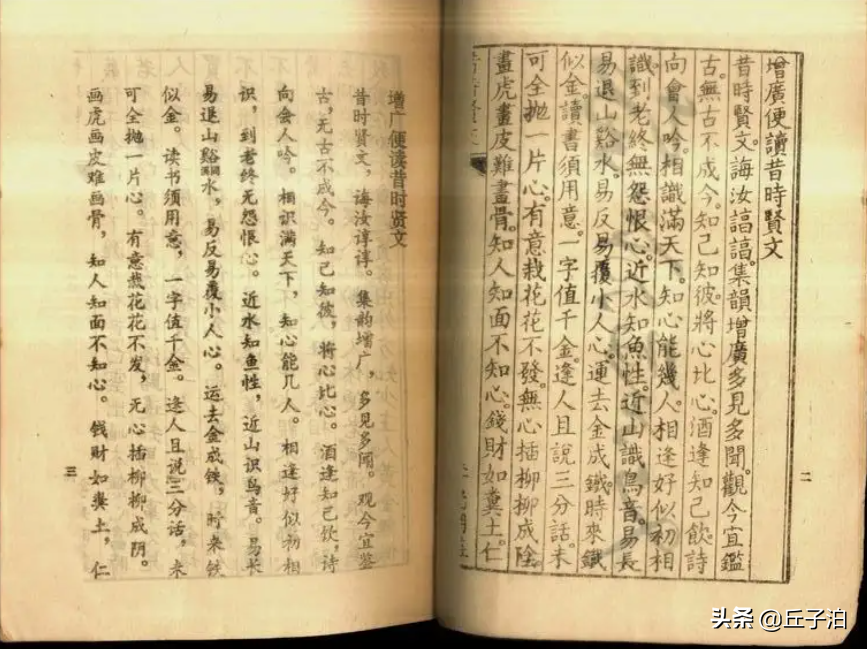 增廣便讀昔時賢文
昔時賢文。誨汝諄諄。集韻增廣多見多聞。觀今宜鑑
古。無古不成今。知己知彼。將心比心。酒逢知己飲。詩
向會人吟。相識滿天下。知心能幾人。相逢好似初相
識。到老終無怨恨心。近水知魚性。近山識鳥音。易長
易退山谿水。易反易覆小人心。運去金成鐵時來鐵
似金。讀書須用意。一字值千金。逢人且說三分話。未
可全拋一片心。有意栽花花不發。無心插柳柳成陰
畫虎畫皮難畫骨。知人知面不知心。錢財如糞土。仁
二
增广便读昔时贤文
昔时贤文，诲汝谆谆。集韵增广，多见多闻。观今宜鉴
古，无古不成今。知己知彼，将心比心。酒逢知己饮，诗
向会人吟。相识满天下，知心能几人。相逢好似初相
识，到老终无怨恨心。近水知鱼性，近山识鸟音。易长
易退山谿水，易反易覆小人心。运去金成铁，时来铁
似金。读书须用意，一字值千金。逢人且说三分话，未
可全抛一片心。有意栽花花不发，无心插柳柳成阴。
画虎画皮难画骨，知人知面不知心。钱财如粪土，仁
三
头条 @丘子泊